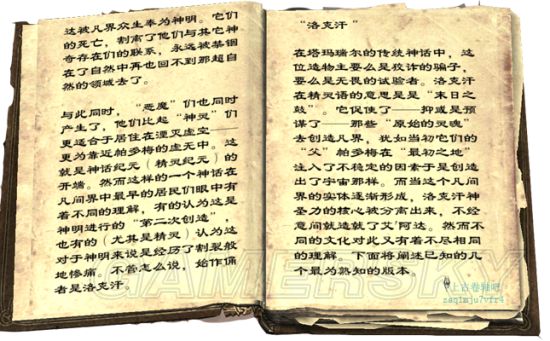 达被凡界众生奉为神明。它们
的死亡，割离了他们与其它神
奇存在们的联系，永远被禁锢
在了自然中再也回不到那超自
然的领域去了。
与此同时，“恶魔”们也同时
产生了，他们比起“神灵”们
更适合于居住在湮灭虚空——
更为靠近帕多梅的虚无中。这
就是神话纪元（精灵纪元）的
开端。然而这样的一个神话在
凡间界中最早的居民们眼中有
着不同的理解，有的认为这是
神明进行的“第二次创造”，
也有的（尤其是精灵）认为这
对于神明来说是经历了割裂般
地惨痛。不管怎么说，始作俑
者是洛克汗。
“洛克汗”
在塔玛瑞尔的传统神话中，这
位造物主要么是狡诈的骗子，
要么是无畏的试验者。洛克汗
在精灵语的意思是是“末日之
鼓”。它促使了——抑或是预
谋了——那些“原始的灵魂”
去创造凡界，犹如当初它们的
“父”帕多梅在“最初之地”
注入了不稳定的因素于是创造
出了宇宙那样。而当这个凡间
界的实体逐渐形成，洛克汗神
圣力的核心被分离出来，不经
意间就造就了艾阿达。然而不
同的文化对此又有着不尽相同
的理解。下面将阐述已知的几
个最为熟知的版本。
上古卷轴吧
zaq1mju7vfr4
GAMERSKY